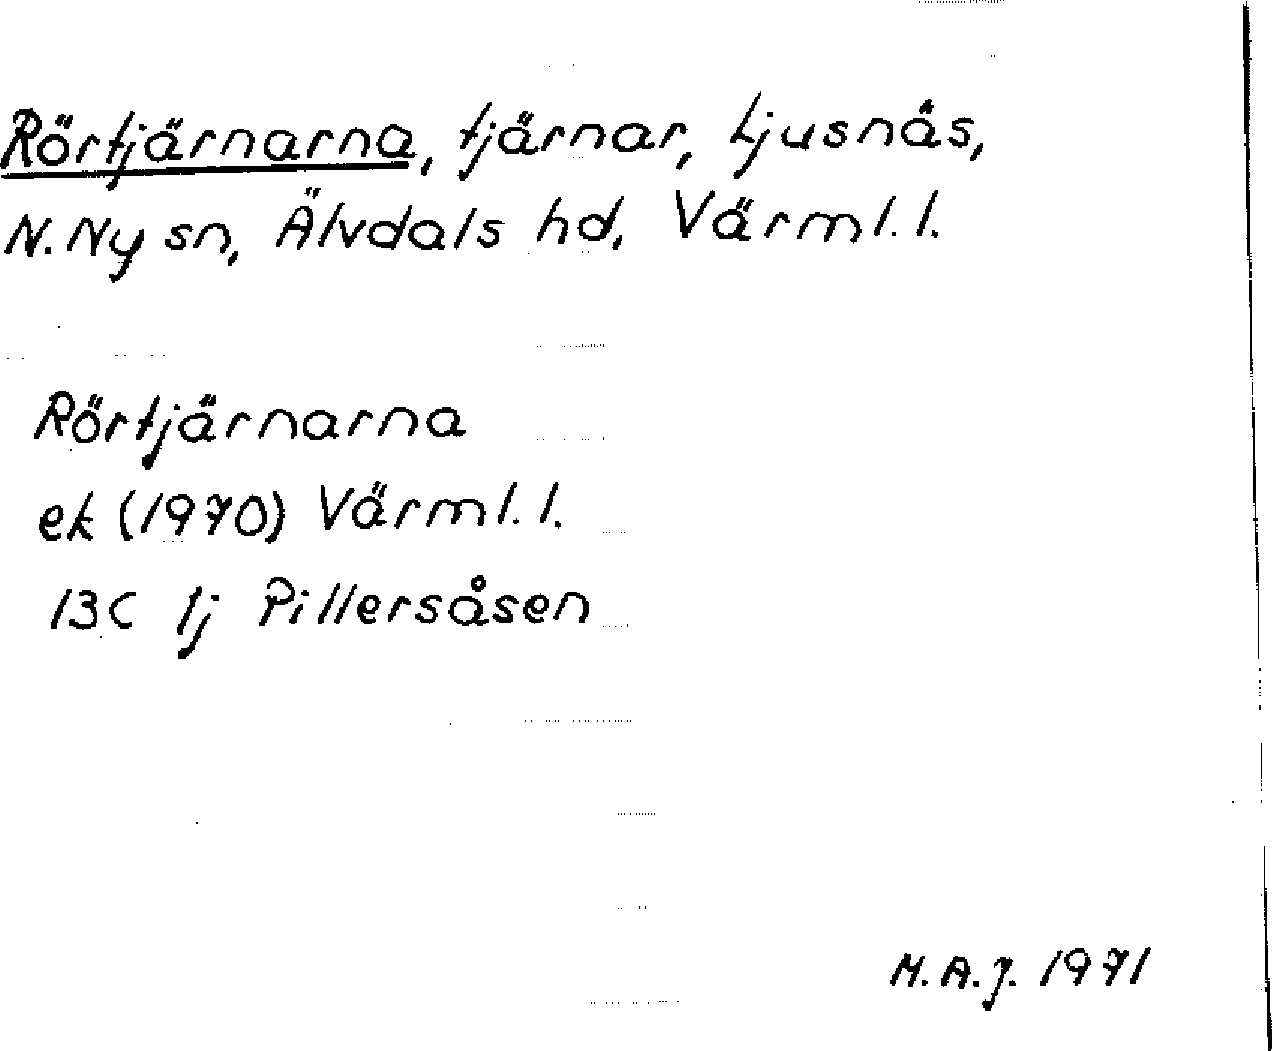 Rörtjärnarna, tjärnar, Ljusnäs,
N. Ny sn, Älvdals hd, Värml. l.
Rörtjärnarna
ek (1970) Värml. l.
13C 1j Pillersåsen
M.A.J. 1971